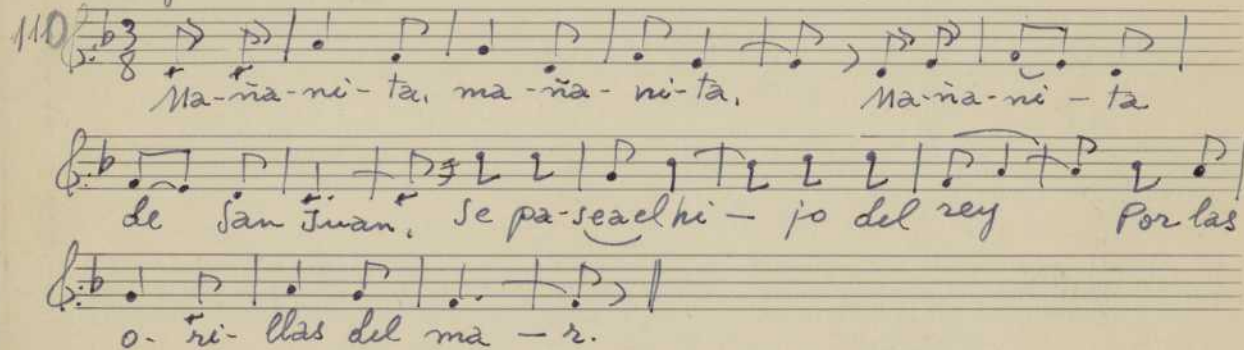 110
3
8
Ma-ña-ni-ta, ma-ña-ni-ta, Ma-ña-ni-ta
de San Juan, se pa-seaelhi-jo del rey Por las
o-ri-llas del ma-r.